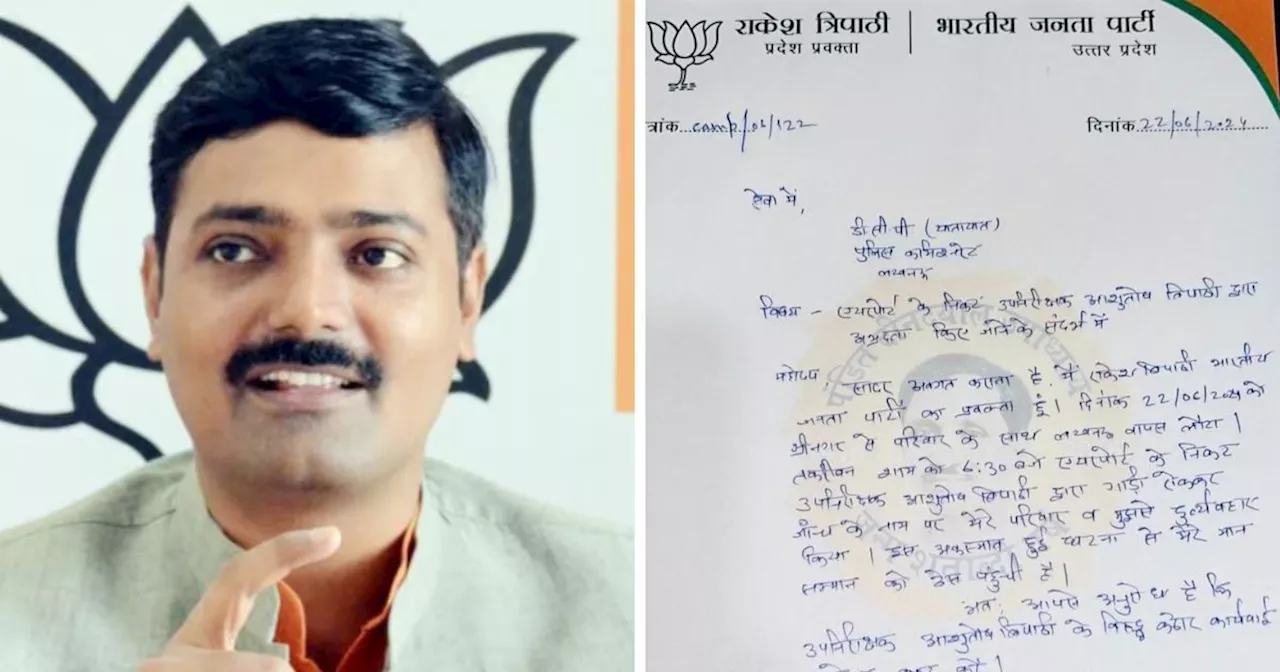 राकेश त्रिपाठी
प्रदेश प्रवक्ता
भारतीय जनता पार्टी
उत्तर प्रदेश
त्रांक...camp/06/122
दिनांक 22/06/2024
सेवा में,
डी सी पी (यातायात)
पुलिस कमिश्नरेट
लखनऊ
विषय - एयरपोर्ट के निकट उपनिरीक्षक आशुतोष त्रिपाठी द्वारा
अभद्रता किए जाने के संदर्भ में
महोदय,
सादर अवगत कराना है, मैं राकेश त्रिपाठी भारतीय
जनता पार्टी का प्रवक्ता हूं। दिनांक 22/06/2024 को
श्रीनगर से परिवार के साथ लखनऊ वापस लौटा।
तकरीबन शाम को 6:30 बजे एयरपोर्ट के निकट
उपनिरीक्षक आशुतोष त्रिपाठी द्वारा गाड़ी रोककर
जाँच के नाम पर मेरे परिवार व मुझसे दुर्व्यवहार
किया। इस अकस्मात हुई घटना से मेरे मान
सम्मान को ठेस पहुंची है।
अतः आपसे अनुरोध है कि
उपनिरीक्षक आशुतोष त्रिपाठी के विरुद्ध कठोर कार्यवाई